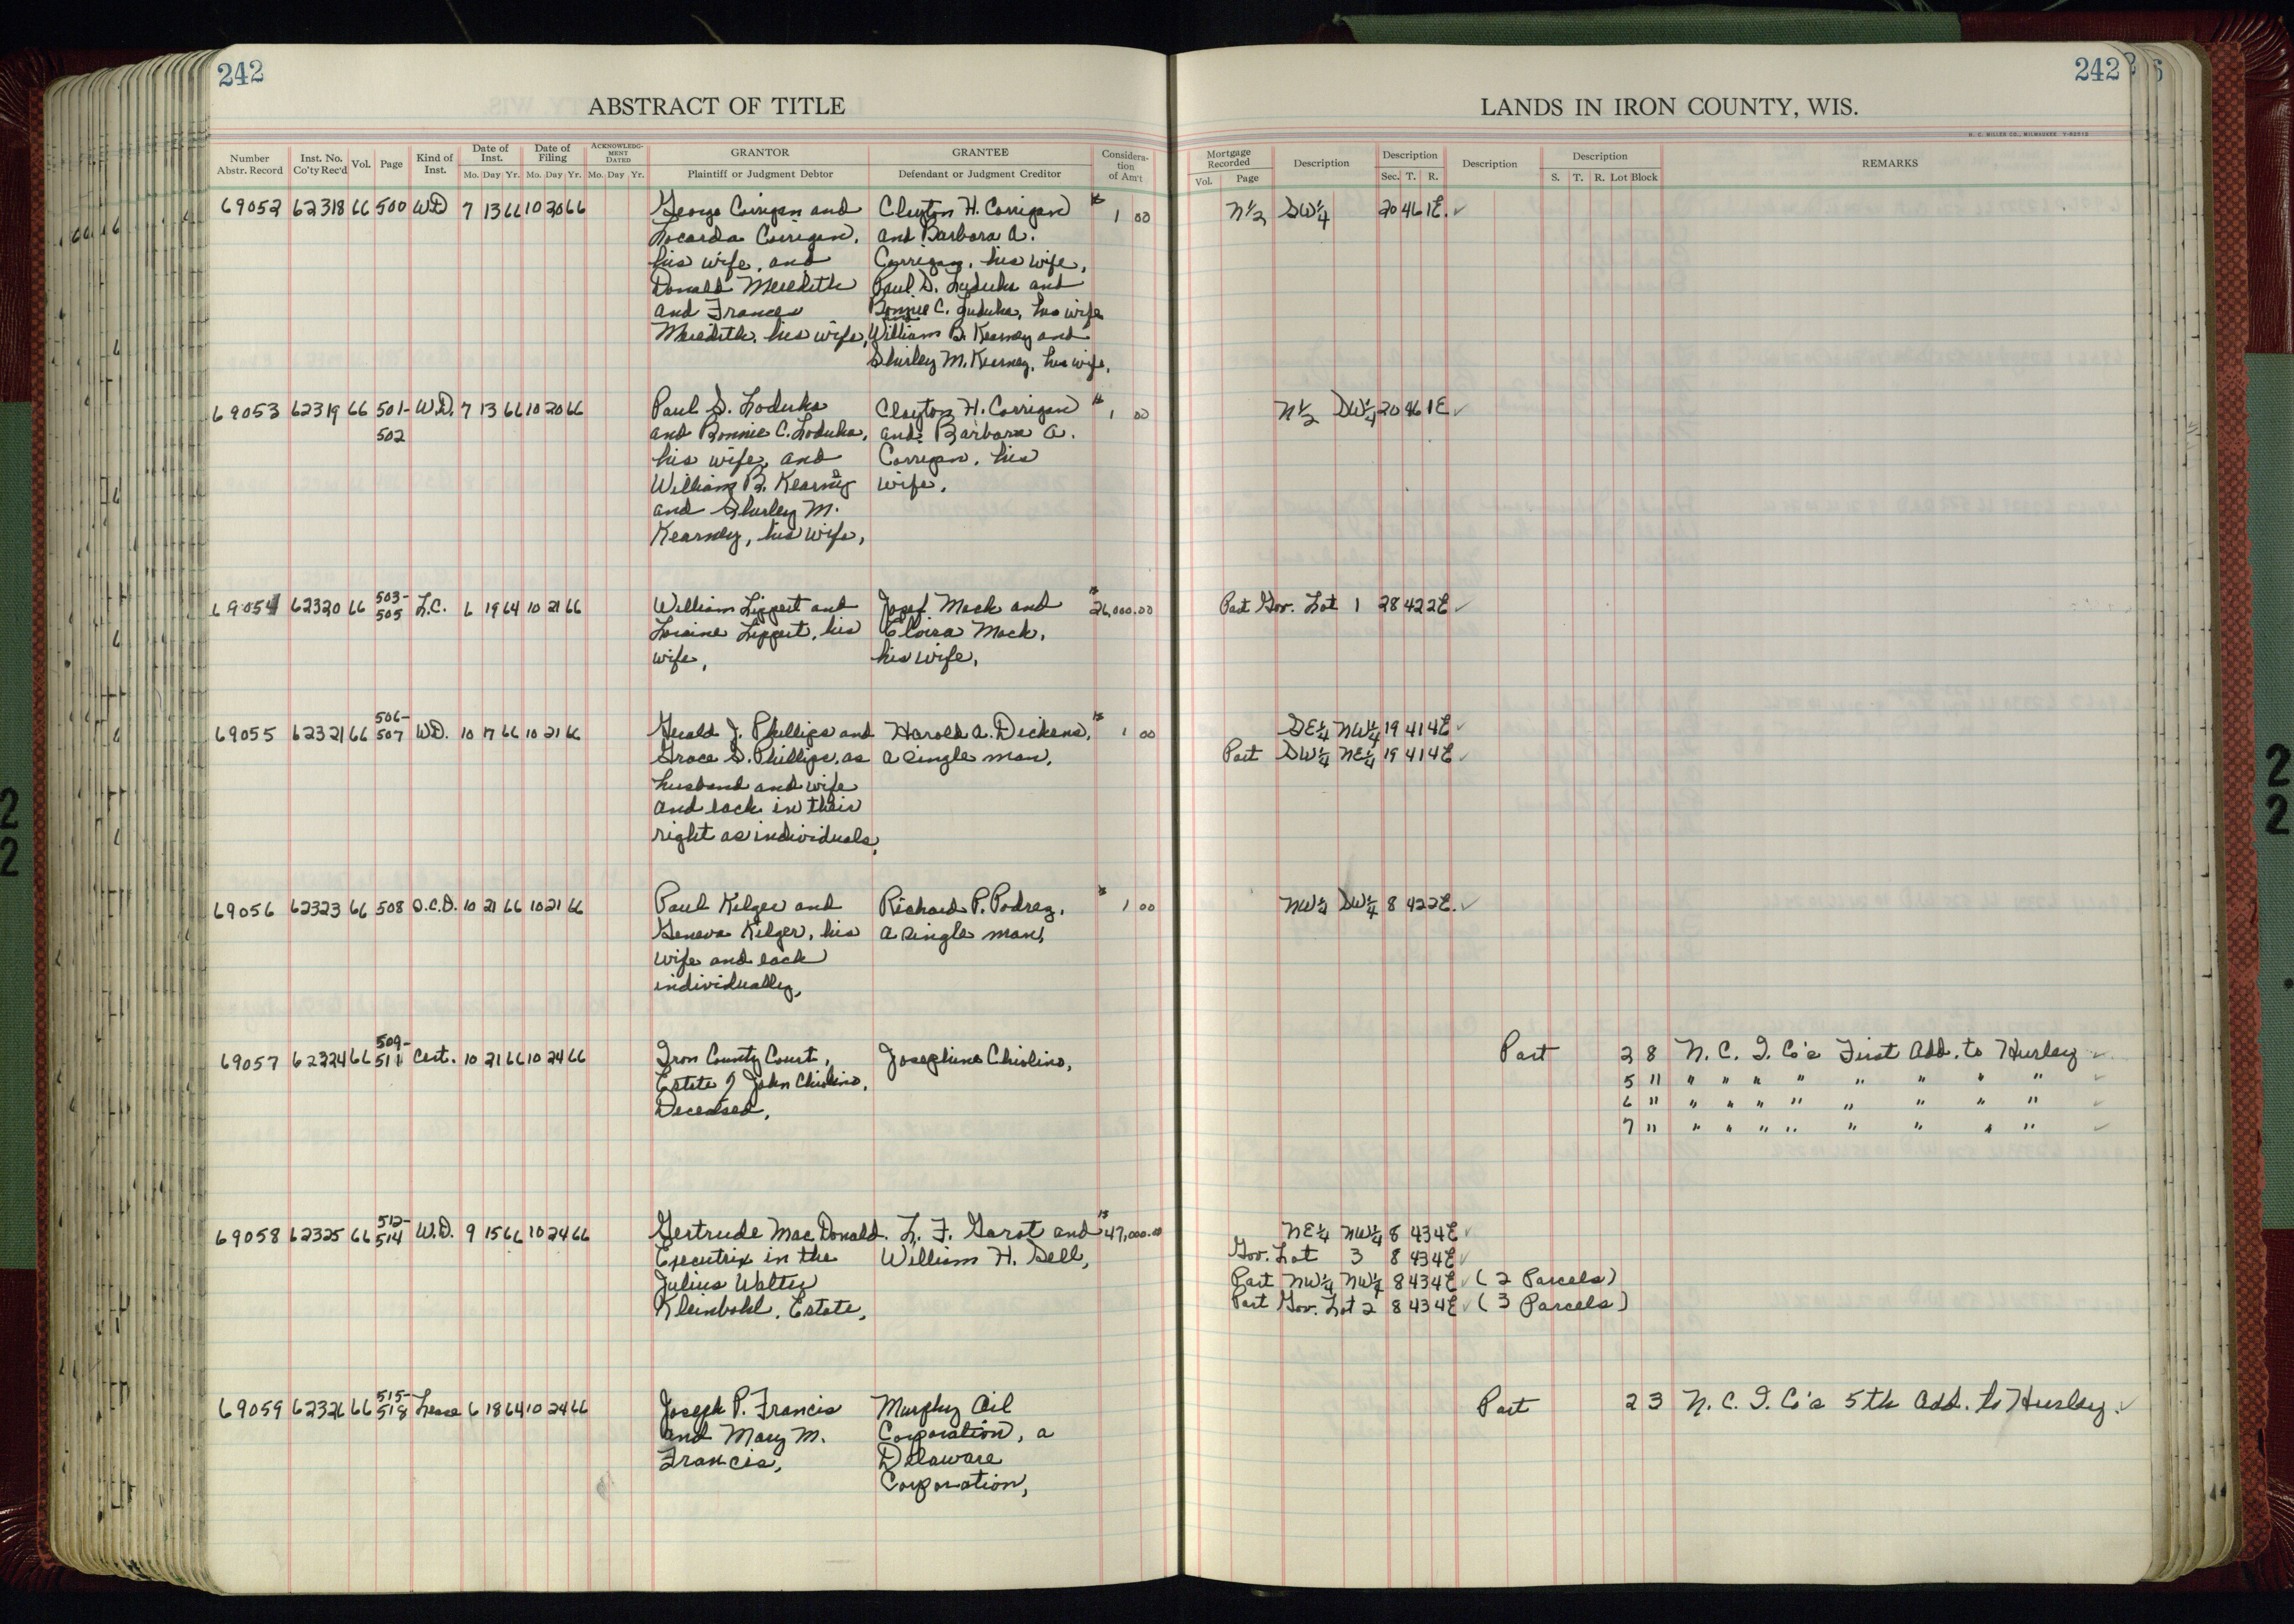 242
ABSTRACT OF TITLE
Number Abstr. Record | Inst. No. Co'ty Rec'd | Vol. | Page | Kind of Inst. | Date of Inst. Mo. Day Yr. | Date of Filing Mo. Day Yr. | ACKNOWLEDGMENT DATED Mo. Day Yr. | GRANTOR Plaintiff or Judgment Debtor | GRANTEE Defendant or Judgment Creditor | Consideration of Am't
69052 62318 66 500 W.D 7 13 66 10 20 66 George Corrigan and Clayton H. Corrigan $1 00
Locarda Corrigan, and Barbara A.
his wife, and Corrigan, his wife,
Donald Meredith Paul S. Loduha and
and Frances Bonnie C. Loduha, his wife
Meredith, his wife, William B. Kearney and
Shirley M. Kearney, his wife,
69053 62319 66 501- W.D. 7 13 66 10 20 66 Paul S. Loduha Clayton H. Corrigan $1 00
502 and Bonnie C. Loduha, and Barbara A.
his wife, and Corrigan, his
William B. Kearney wife,
and Shirley M.
Kearney, his wife,
69054 62320 66 503-505 L.C. 6 19 64 10 21 66 William Lippert and Josef Mack and $26,000.00
Loraine Lippert, his Elvira Mack,
wife, his wife,
69055 62321 66 506-507 W.D. 10 17 66 10 21 66 Gerald J. Phillips and Harold A. Dickens, $1 00
Grace S. Phillips, as a single man,
husband and wife
and each in their
right as individuals,
69056 62323 66 508 Q.C.D. 10 21 66 10 21 66 Paul Kilger and Richard P. Podrez, $1 00
Geneva Kilger, his a single man,
wife and each
individually,
69057 62324 66 509-511 Cert. 10 21 66 10 24 66 Iron County Court, Josephine Chiolino,
Estate of John Chiolino,
Deceased,
69058 62325 66 512-514 W.D. 9 15 66 10 24 66 Gertrude MacDonald L. F. Garot and $47,000.00
Executrix in the William H. Sell,
Julius Walter
Kleinbohl, Estate,
69059 62326 66 515-518 Lease 6 18 64 10 24 66 Joseph P. Francis Murphy Oil
and Mary M. Corporation, a
Francis, Delaware
Corporation,
242
LANDS IN IRON COUNTY, WIS.
H. C. MILLER CO., MILWAUKEE
Mortgage Recorded Vol. Page | Description | Description Sec. T. R. | Description | Description S. T. R. Lot Block | REMARKS
N½ SW¼ 20 46 1E. ✓
N½ SW¼ 20 46 1E ✓
Part Gov. Lot 1 28 42 2E ✓
SE¼ NW¼ 19 41 4E ✓
Part SW¼ NE¼ 19 41 4E ✓
NW¼ SW¼ 8 42 2E. ✓
Part 2 8 N. C. I. Co's First Add. to Hurley ✓
5 " " " " " " " " " ✓
6 " " " " " " " " " ✓
7 " " " " " " " " " ✓
NE¼ NW¼ 8 43 4E ✓
Gov. Lot 3 8 43 4E ✓
Part NW¼ NW¼ 8 43 4E ✓ (2 Parcels)
Part Gov. Lot 2 8 43 4E ✓ (3 Parcels)
Part 2 3 N. C. I. Co's 5th Add. to Hurley. ✓
2
2
2
2